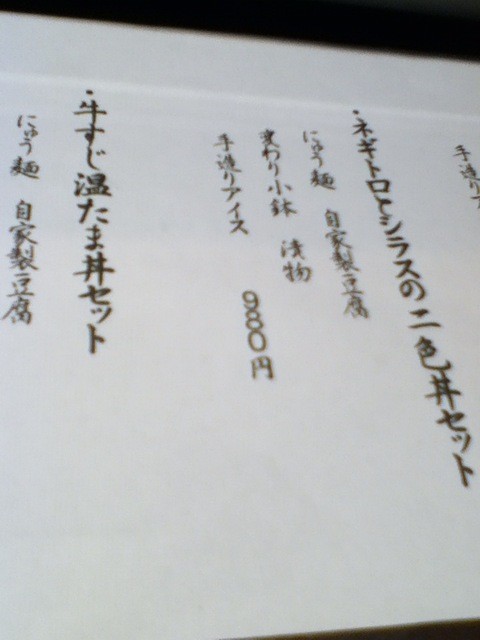 手造り
・ネギトロとシラスの二色丼セット
にゅう麺 自家製豆腐
変わり小鉢 漬物
手造りアイス 980円
・牛すじ温たま丼セット
にゅう麺 自家製豆腐